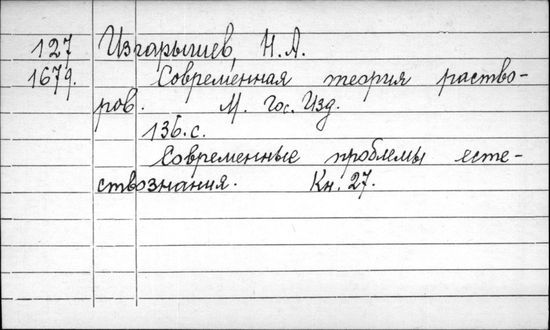 127 Изгарышев, Н. А.
1679. Современная теория раство-
ров. М. Гос. Изд.
136 с.
Современные проблемы есте-
ствознания. Кн. 27.